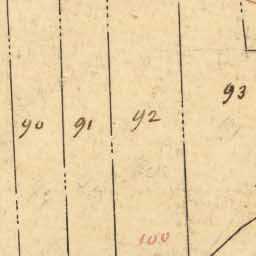 93
92
90 91
100